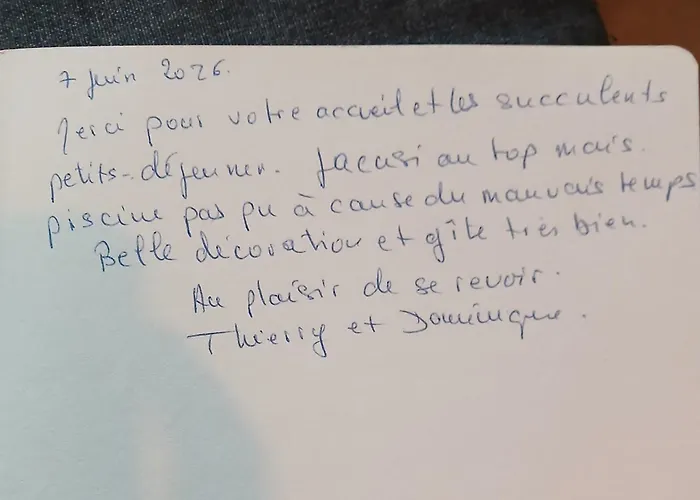 7 Juin 2026.
Merci pour votre accueil et les succulents
petits-déjeuner. Jacusi au top mais.
piscine pas pu à cause du mauvais temps
Belle décoration et gîte très bien.
Au plaisir de se revoir.
Thierry et Dominique.